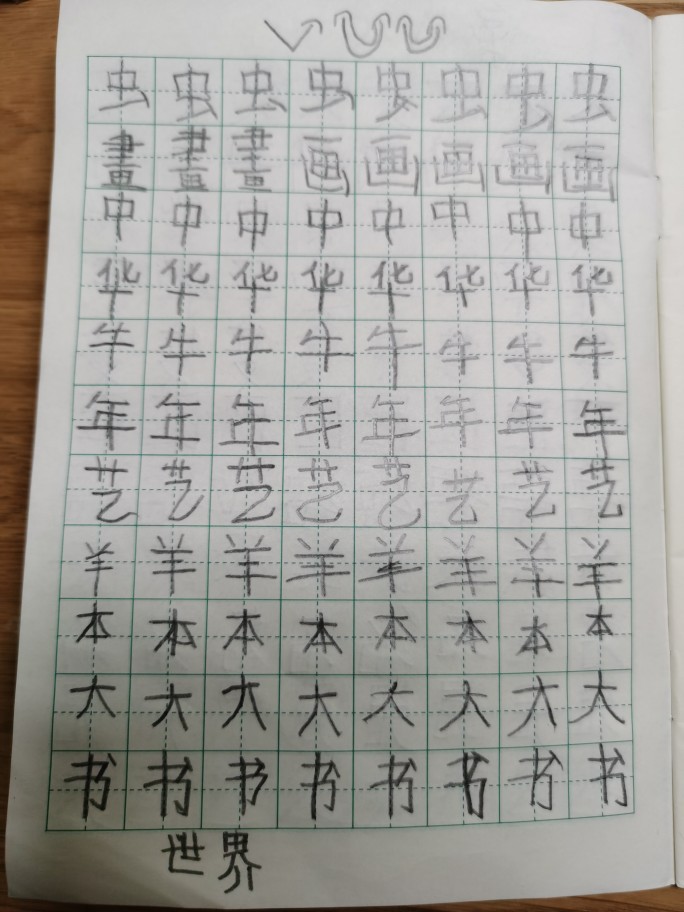 虫虫虫虫虫虫虫虫
畫畫畫画画画画画
中中中中中中中中
华华华华华华华华
牛牛牛牛牛牛牛牛
年年年年年年年年
艺艺艺艺艺艺艺艺
羊羊羊羊羊羊羊羊
本本本本本本本本
大大大大大大大大
书书书书书书书书
世界